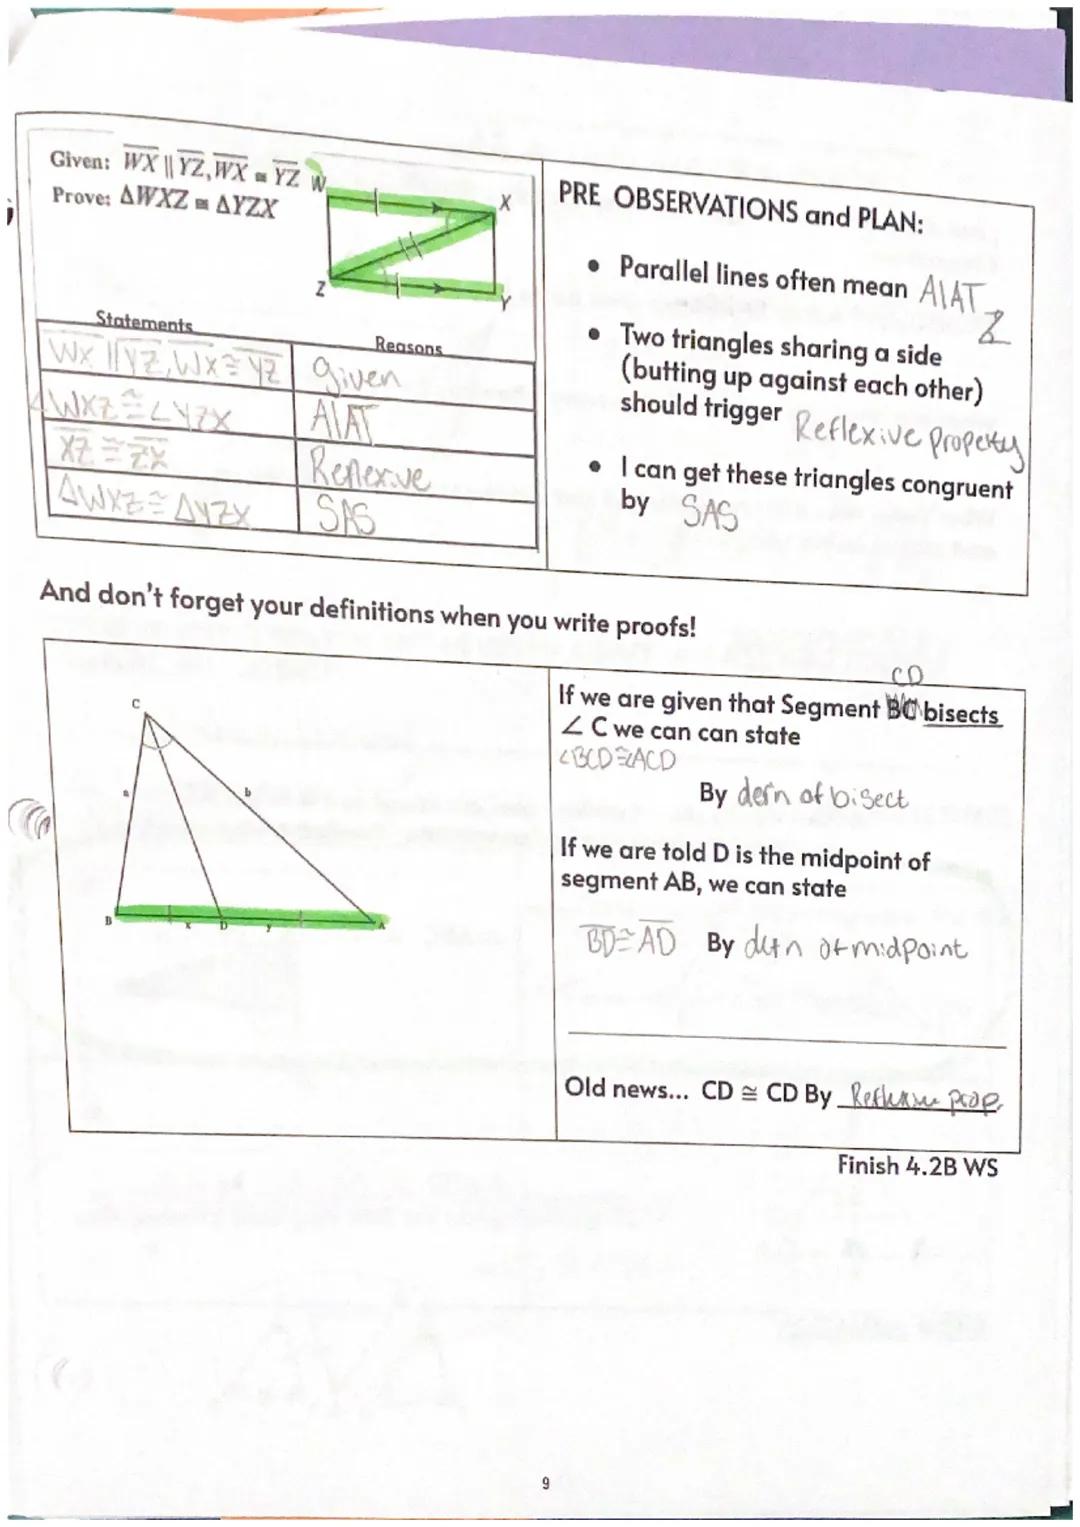 Given: WX || YZ, WX ≅ YZ
Prove: ΔWXZ ≅ ΔYZX
W
X
Z
Y
Statements
Reasons
WX || YZ, WX ≅ YZ
given
∠WXZ ≅ ∠YZX
AIAT
XZ ≅ ZX
Reflexive
ΔWXZ ≅ ΔYZX
SAS
PRE OBSERVATIONS and PLAN:
• Parallel lines often mean AIAT
Z
• Two triangles sharing a side
(butting up against each other)
should trigger Reflexive property
• I can get these triangles congruent
by SAS
And don't forget your definitions when you write proofs!
C
a
b
B
x
D
y
A
CD
If we are given that Segment BC bisects
∠ C we can can state
∠BCD ≅ ∠ACD
By defn of bisect
If we are told D is the midpoint of
segment AB, we can state
BD ≅ AD By defn of midpoint
Old news... CD ≅ CD By Reflexive prop.
Finish 4.2B WS
9